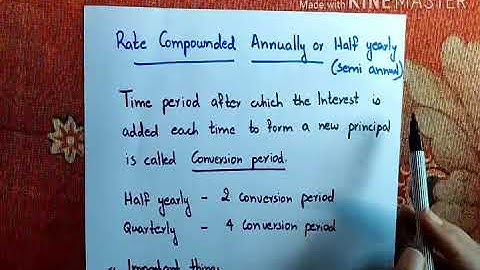 Made with KINEMASTER
Rate Compounded Annually or Half yearly
(semi annual)
Time period after which the Interest is
added each time to form a new principal
is called Conversion period.
Half yearly - 2 conversion period
Quarterly - 4 conversion period
Important thing